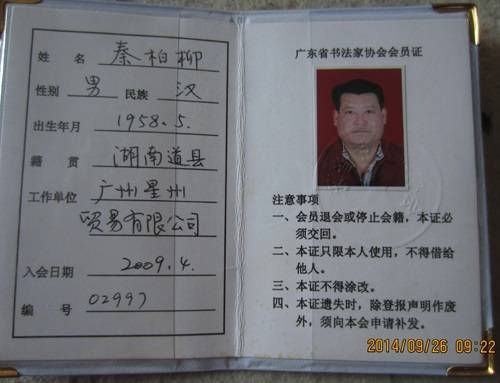 姓 名 秦柏柳
性别 男 民族 汉
出生年月 1958.5.
籍 贯 湖南道县
工作单位 广州星州
贸易有限公司
入会日期 2009.4.
编 号 02997
广东省书法家协会会员证
注意事项
一、会员退会或停止会籍，本证必
须交回。
二、本证只限本人使用，不得借给
他人。
三、本证不得涂改。
四、本证遗失时，除登报声明作废
外，须向本会申请补发。
2014/09/26 09:22